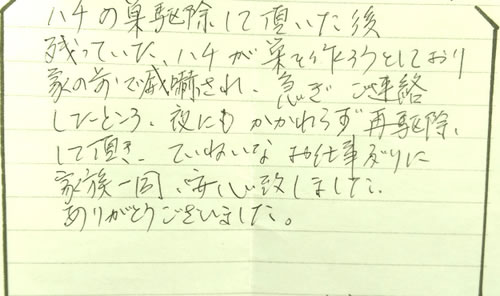 ハチの巣駆除して頂いた後
残っていた、ハチが巣を作ろうとしており
家の前で威嚇され、急ぎ ご連絡
したところ、夜にもかかわらず 再駆除、
して頂き、ていねいな お仕事ぶりに
家族一同、安心致しました。
ありがとうございました。